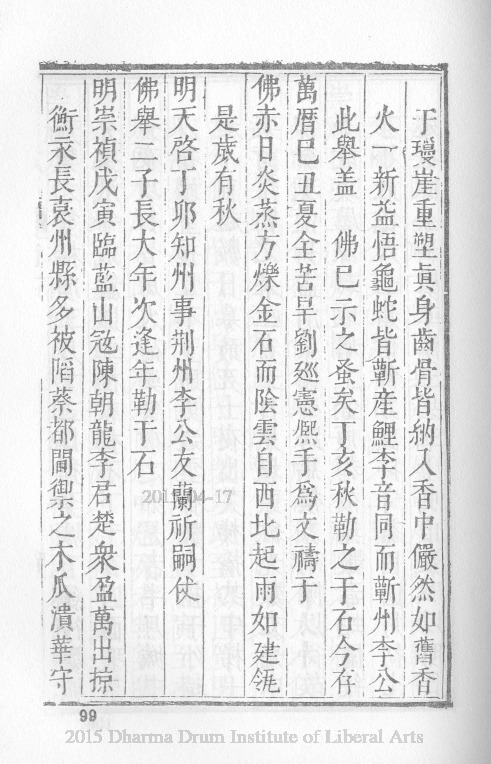 于瓊崖重塑眞身齒骨皆納入香中儼然如舊香
火一新益悟龜蛇皆蘄産鯉李音同而蘄州李公
此舉盖　佛巳示之蚤矣丁亥秋勒之于石今存
萬厝巳丑夏全苦旱劉廵憲熈手爲文禱于
佛赤日炎蒸方爍金石而陰雲自西北起雨如建瓴
是歲有秋
明天啓丁卯知州事荆州李公友蘭祈嗣仗
佛舉二子長大年次逢年勒于石
明崇禎戊寅臨藍山冦陳朝龍李君楚衆盈萬出掠
衡永長袁州縣多被陷蔡都閫禦之木瓜潰華守
2015-04-17
99
2015 Dharma Drum Institute of Liberal Arts